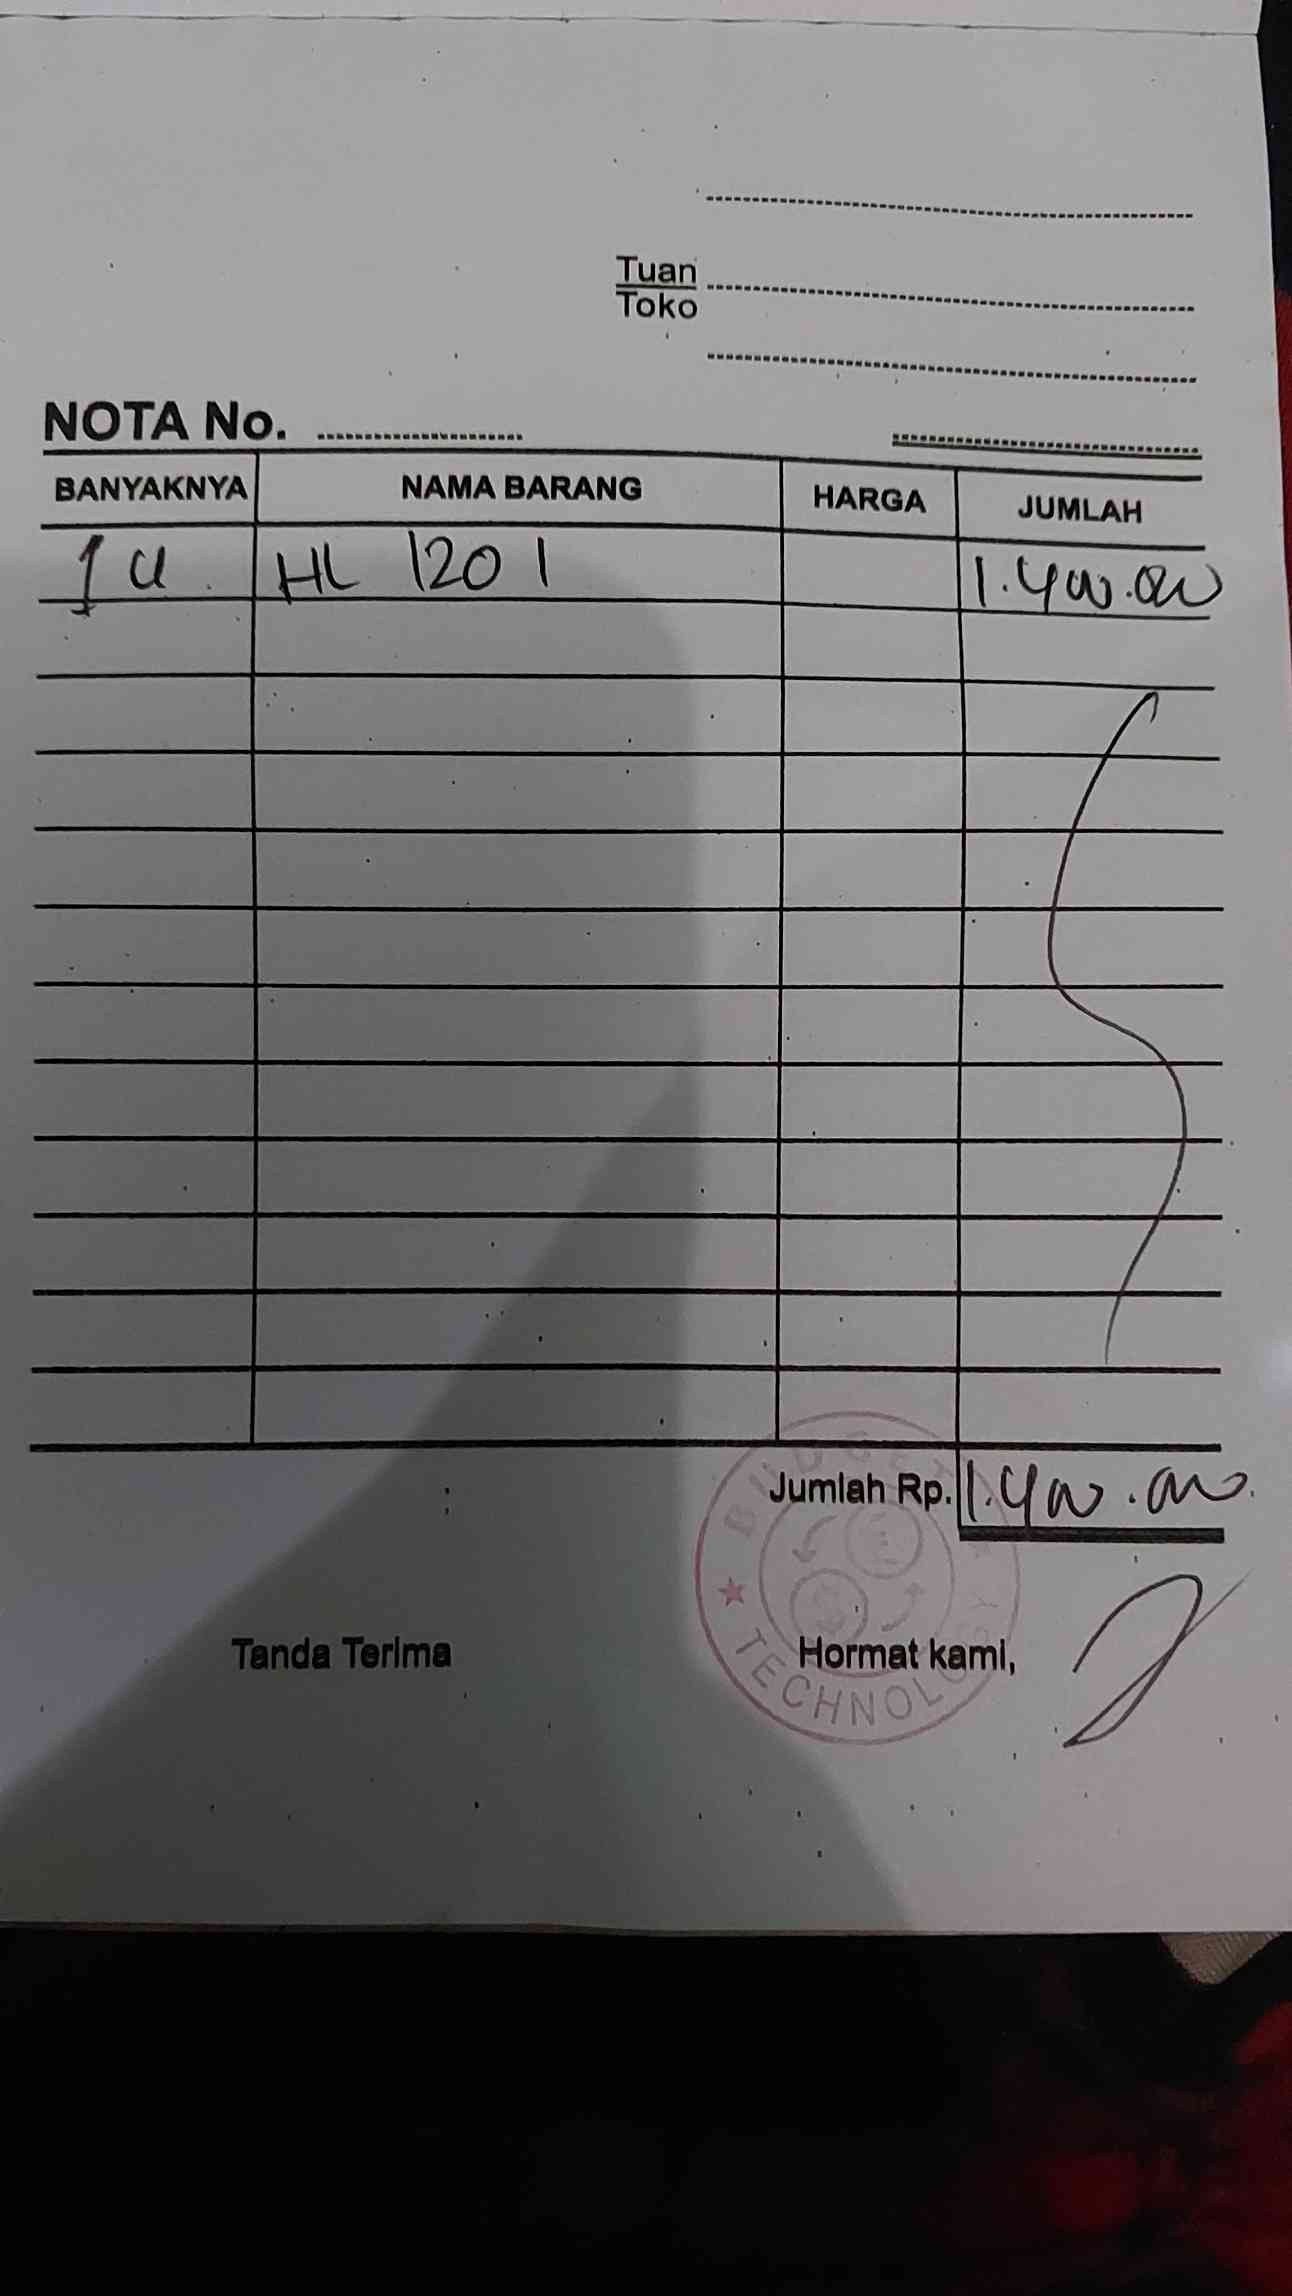 Tuan
Toko
NOTA No.
BANYAKNYA NAMA BARANG HARGA JUMLAH
1 U. HL 1201 1.400.000
Jumlah Rp. 1.400.000.
Tanda Terima Hormat kami,
BUDGET TECHNOLOGY